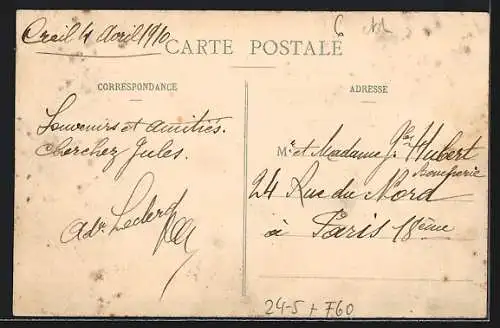 Creil 4 Avril 1910
6
CARTE POSTALE
CORRESPONDANCE
ADRESSE
Souvenirs et amitiés.
Cherchez Jules.
Adr Leclerc
Mr et Madame Jles Hubert
Boucherie
24 Rue du Nord
à Paris 18ème
24-5 + F60